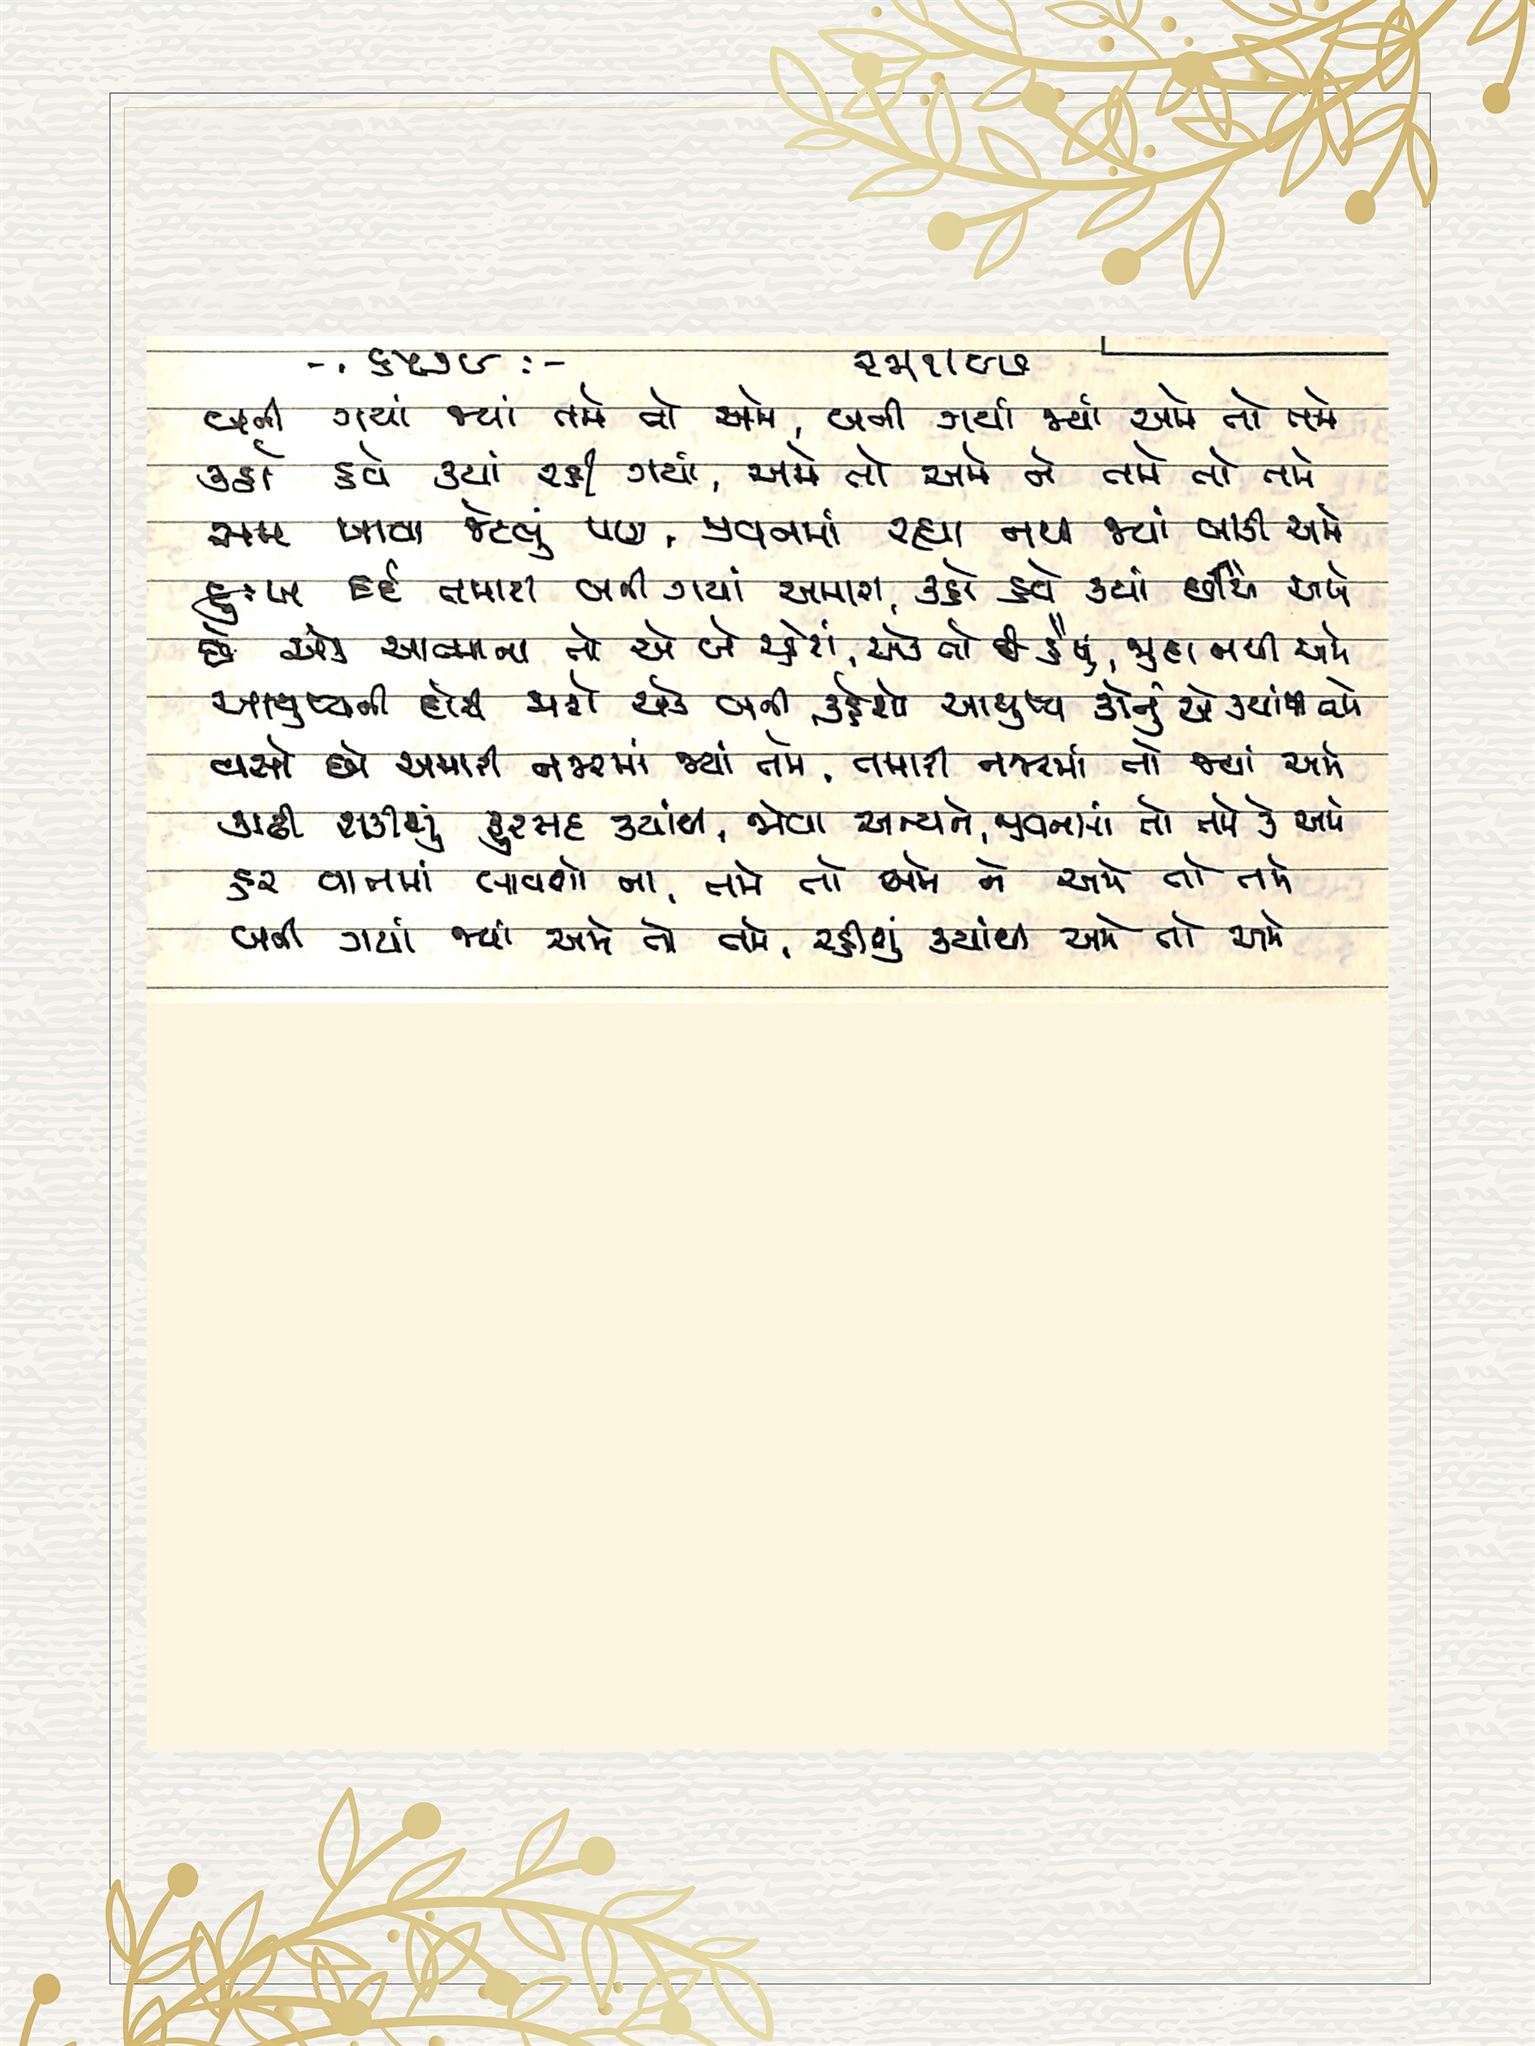 બની ગયાં જ્યાં તમે તો અમે, બની ગયાં જ્યાં અમે તો તમે
કહો હવે ક્યાં રહી ગયાં, અમે તો અમે ને તમે તો તમે
નામ ખાવા જેટલું પણ, જીવનમાં રહ્યા નથી જ્યાં બાકી અમે
દુઃખ દર્દ તમારા બની ગયાં અમારા, કહો હવે ક્યાં છીએ અમે
છે એક આત્માના તો એ બે ચહેરા, એક તો છીએ, જુદા નથી અમે
આયુષ્યની દોરી જાશે એક બની, કહેશો આયુષ્ય કોનું એ ક્યાંથી તમે
વસો છો અમારી નજરમાં જ્યાં તમે, તમારી નજરમાં તો જ્યાં અમે
કાઢી શકીશું ફુરસદ ક્યાંથી, જોવા અન્યને, જીવનમાં તો તમે કે અમે
હર વાતમાં લાવશો ના, તમે તો અમે ને અમે તો તમે
બની ગયાં જ્યાં અમે તો તમે, રહીશું ક્યાંથી અમે તો અમે